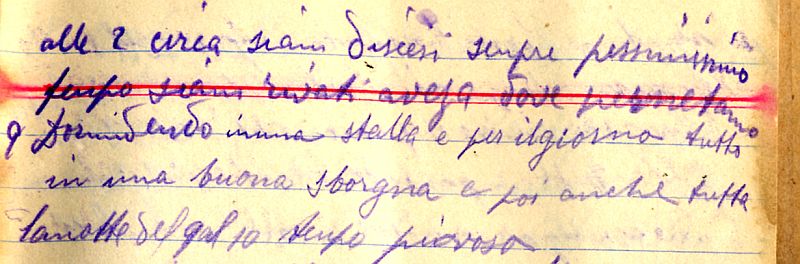 alle 2 circa siam discesi sempre pessimissimo
tempo siam rivati a dove pernotamo
9 Dormidendo inuna stalla e per ilgiorno tutto
in una buona sborgna e poi anche tutta
lanotte del gal 10 tempo piovoso